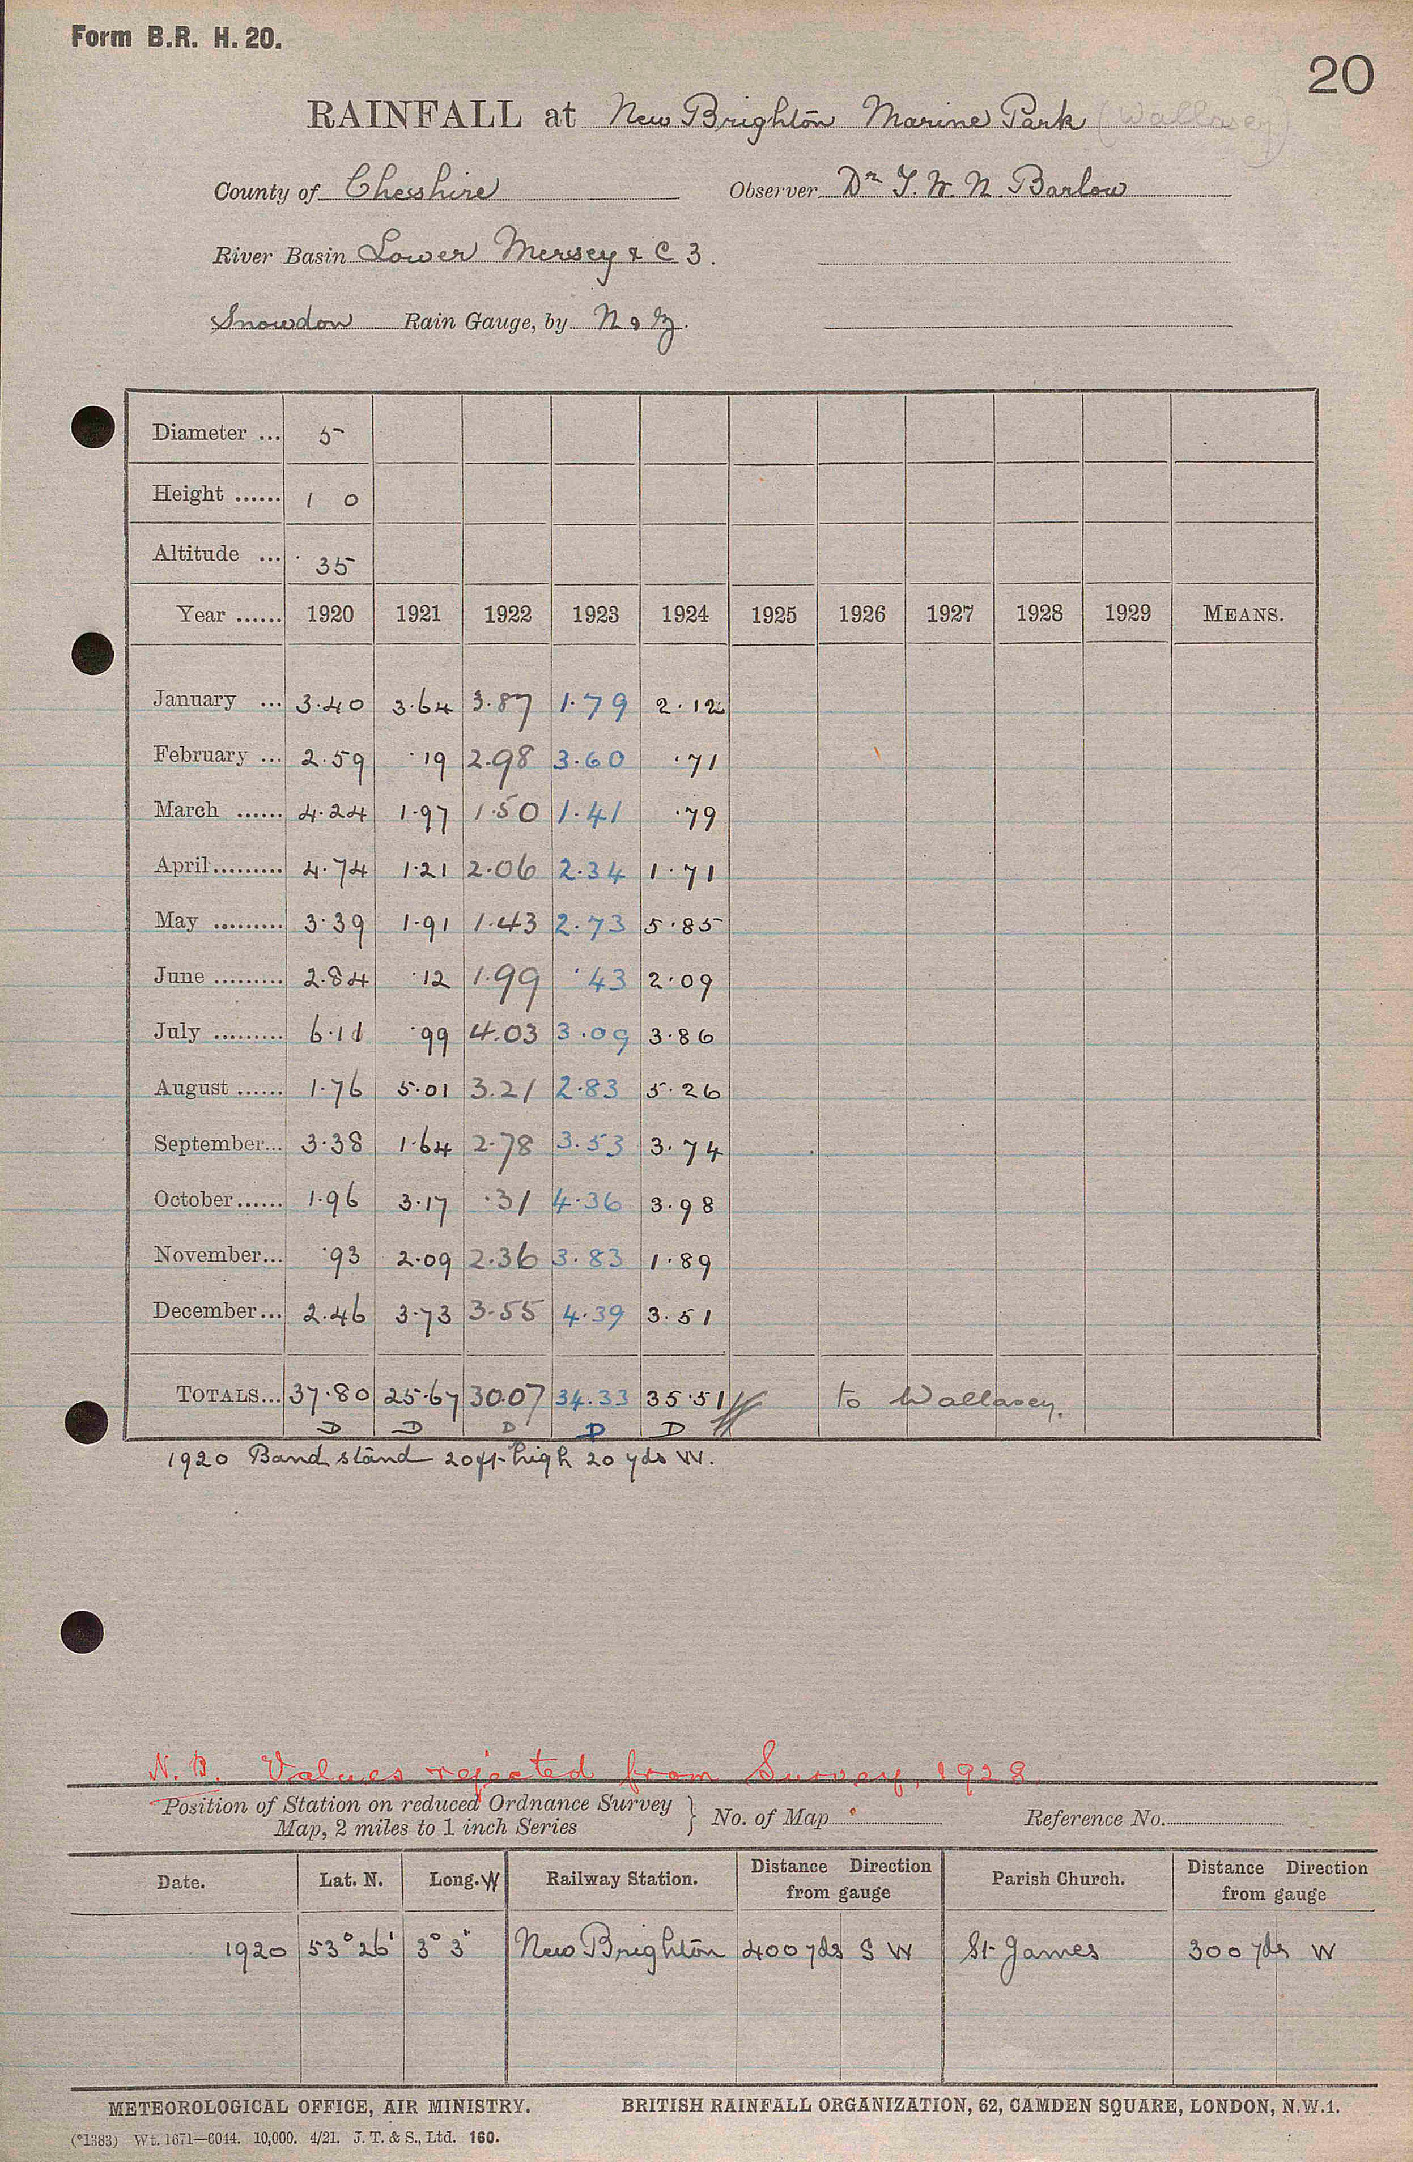 Form B.R. H. 20.
20
RAINFALL at New Brighton Marine Park (Wallasey)
County of Chesshire Observer Dr T. W. N. Barlow
River Basin Lower Mersey & C 3.
Snowdon Rain Gauge, by N & Z.
Diameter ... 5
Height ...... 1 0
Altitude ... 35
Year ...... 1920 1921 1922 1923 1924 1925 1926 1927 1928 1929 MEANS.
January ... 3.40 3.64 3.87 1.79 2.12
February ... 2.59 .19 2.98 3.60 .71
March ...... 4.24 1.97 1.50 1.41 .79
April ......... 4.74 1.21 2.06 2.34 1.71
May ......... 3.39 1.91 1.43 2.73 5.85
June ......... 2.84 .12 1.99 .43 2.09
July ......... 6.11 .99 4.03 3.09 3.86
August ...... 1.76 5.01 3.21 2.83 5.26
September... 3.38 1.64 2.78 3.53 3.74
October ...... 1.96 3.17 .31 4.36 3.98
November... .93 2.09 2.36 3.83 1.89
December... 2.46 3.73 3.55 4.39 3.51
TOTALS... 37.80 25.67 30.07 34.33 35.51 to Wallasey.
D D D D D
1920 Band stand 20ft high 20 yds W.
N.B. Values rejected from Survey, 1928
Position of Station on reduced Ordnance Survey
Map, 2 miles to 1 inch Series } No. of Map Reference No.
Date. Lat. N. Long. W Railway Station. Distance Direction from gauge Parish Church. Distance Direction from gauge
1920 53° 26' 3° 3" New Brighton 400 yds S W St James 300 yds W
METEOROLOGICAL OFFICE, AIR MINISTRY. BRITISH RAINFALL ORGANIZATION, 62, CAMDEN SQUARE, LONDON, N.W.1.
(*1383) Wt. 1671—6044. 10,000. 4/21. J. T. & S., Ltd. 160.